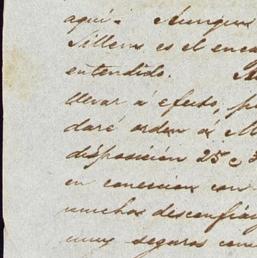 aquí. Aunque
Sillem es el enca
entendido.
llevar á efecto, p
daré orden á M
disposición 25 c
en conección con
muchos desconfia
muy seguros con